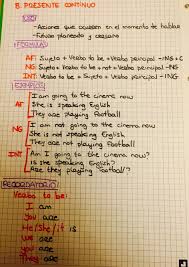 8. PRESENTE CONTINUO
USO
- Acciones que ocurren en el momento de hablar
- Futuro planeado y cercano
FÓRMULAS
AF: Sujeto + Verbo to be + Verbo principal -ING + C
NG: Sujeto + Verbo to be + not + Verbo principal -ING
INT: Verbo to be + Sujeto + Verbo principal -ING
EJEMPLOS
AF I am going to the cinema now
She is speaking English
They are playing football
NG I am not going to the cinema now
She is not speaking English
They are not playing football
INT Am I going to the cinema now?
Is she speaking English?
Are they playing football?
RECORDATORIO
Verbo to be:
I am
you are
He/She/it is
we are
you are
They are